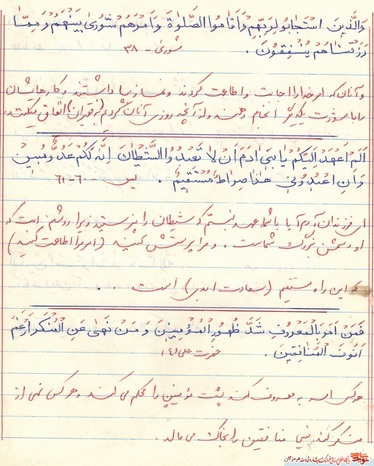 وَالَّذينَ اسْتَجابُوا لِرَبِّهِمْ وَاَقامُوا الصَّلوةَ وَاَمْرُهُمْ شُورى بَيْنَهُمْ وَمِمّا
رَزَقْناهُمْ يُنْفِقُونَ. شورى - ٣٨
وآنان که امر خدا را اجابت و اطاعت کردند و نماز بپا داشتند و کارهایشان
را با مشورت یکدیگر انجام دهند و از آنچه روزی آنان کردیم (به فقیران) انفاق میکنند
اَلَمْ اَعْهَدْ اِلَيْكُمْ يا بَنى ادَمَ اَنْ لا تَعْبُدُوا الشَّيْطانَ اِنَّهُ لَكُمْ عَدُوٌّ مُبينٌ
وَاَنِ اعْبُدُونى هذا صِراطٌ مُسْتَقيمٌ. يس ٦٠-٦١
ای فرزندان آدم آیا با شما عهد نبستم که شیطان را نپرستید زیرا روشن است که
او دشمن بزرگ شماست . و مرا پرستش کنید (امر مرا اطاعت کنید)
که این راه مستقیم (سعادت ابدی) است ...
فَمَنْ اَمَرَ بِالْمَعْرُوفِ شَدَّ ظُهُورَ الْمُؤْمِنينَ وَ مَنْ نَهى عَنِ الْمُنْكَرِ اَرْغَمَ
اُنُوفَ الْمُنافِقينَ. حضرت علی (ع)
هر کس امر به معروف کند پشت مؤمنین را محکم می کند و هر کس نهی از
منکر کند بینی منافقین را بخاک می مالد.